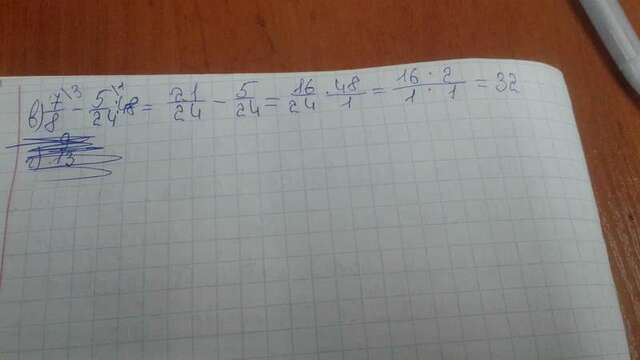 в) 7\3/8 - 5\1/24 · 48 = 21/24 - 5/24 = 16/24 · 48/1 = 16 · 2/1 · 1 = 32